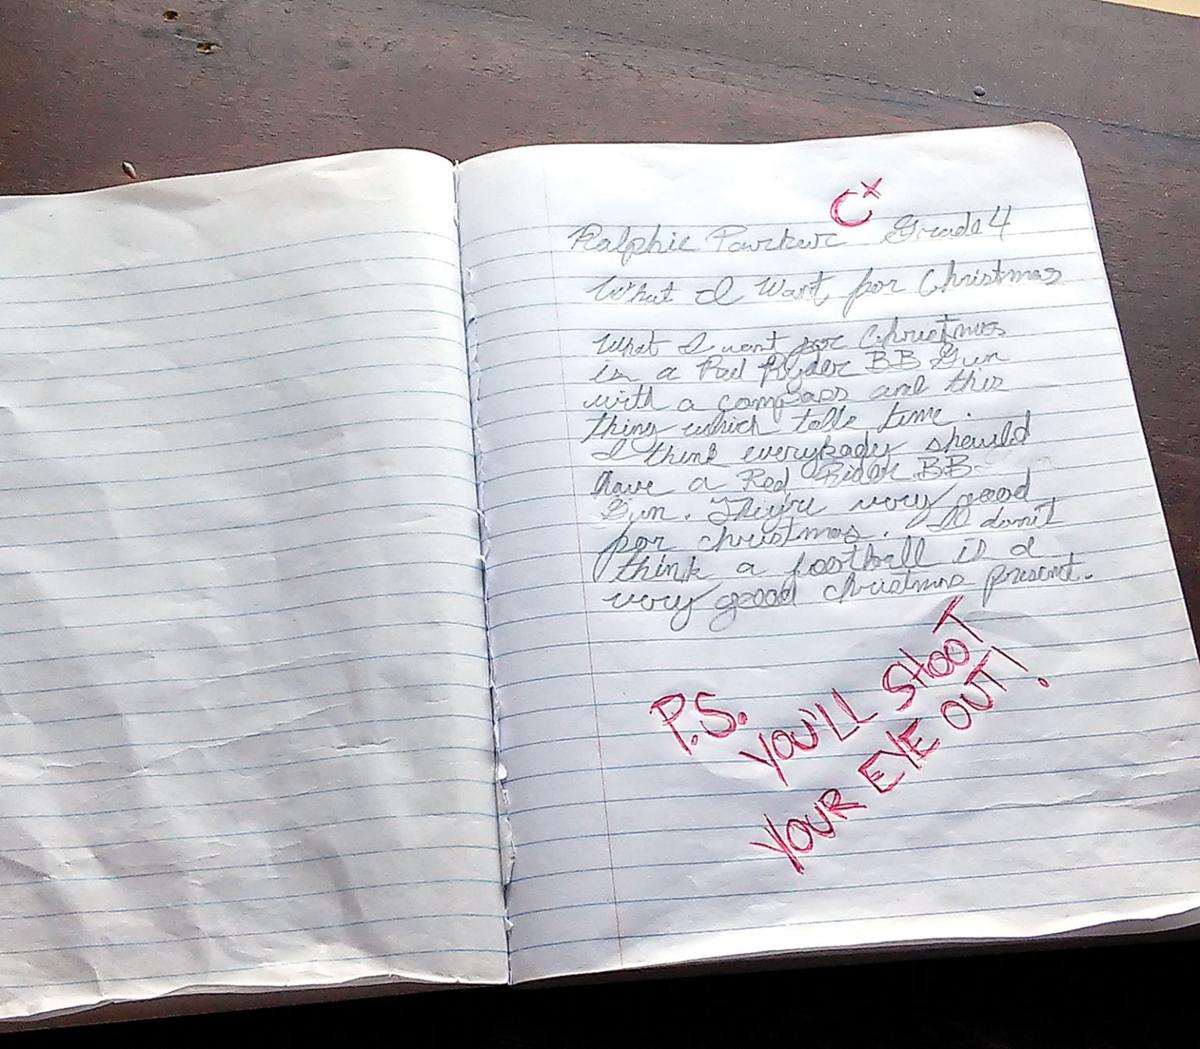 C+
Ralphie Parker Grade 4
What I Want for Christmas
What I want for Christmas
is a Red Ryder BB Gun
with a compass and this
thing which tells time.
I think everybody should
have a Red Rider BB
Gun. They're very good
for christmas. I don't
think a football is a
very good christmas present.
P.S.
YOU'LL SHOOT
YOUR EYE OUT!